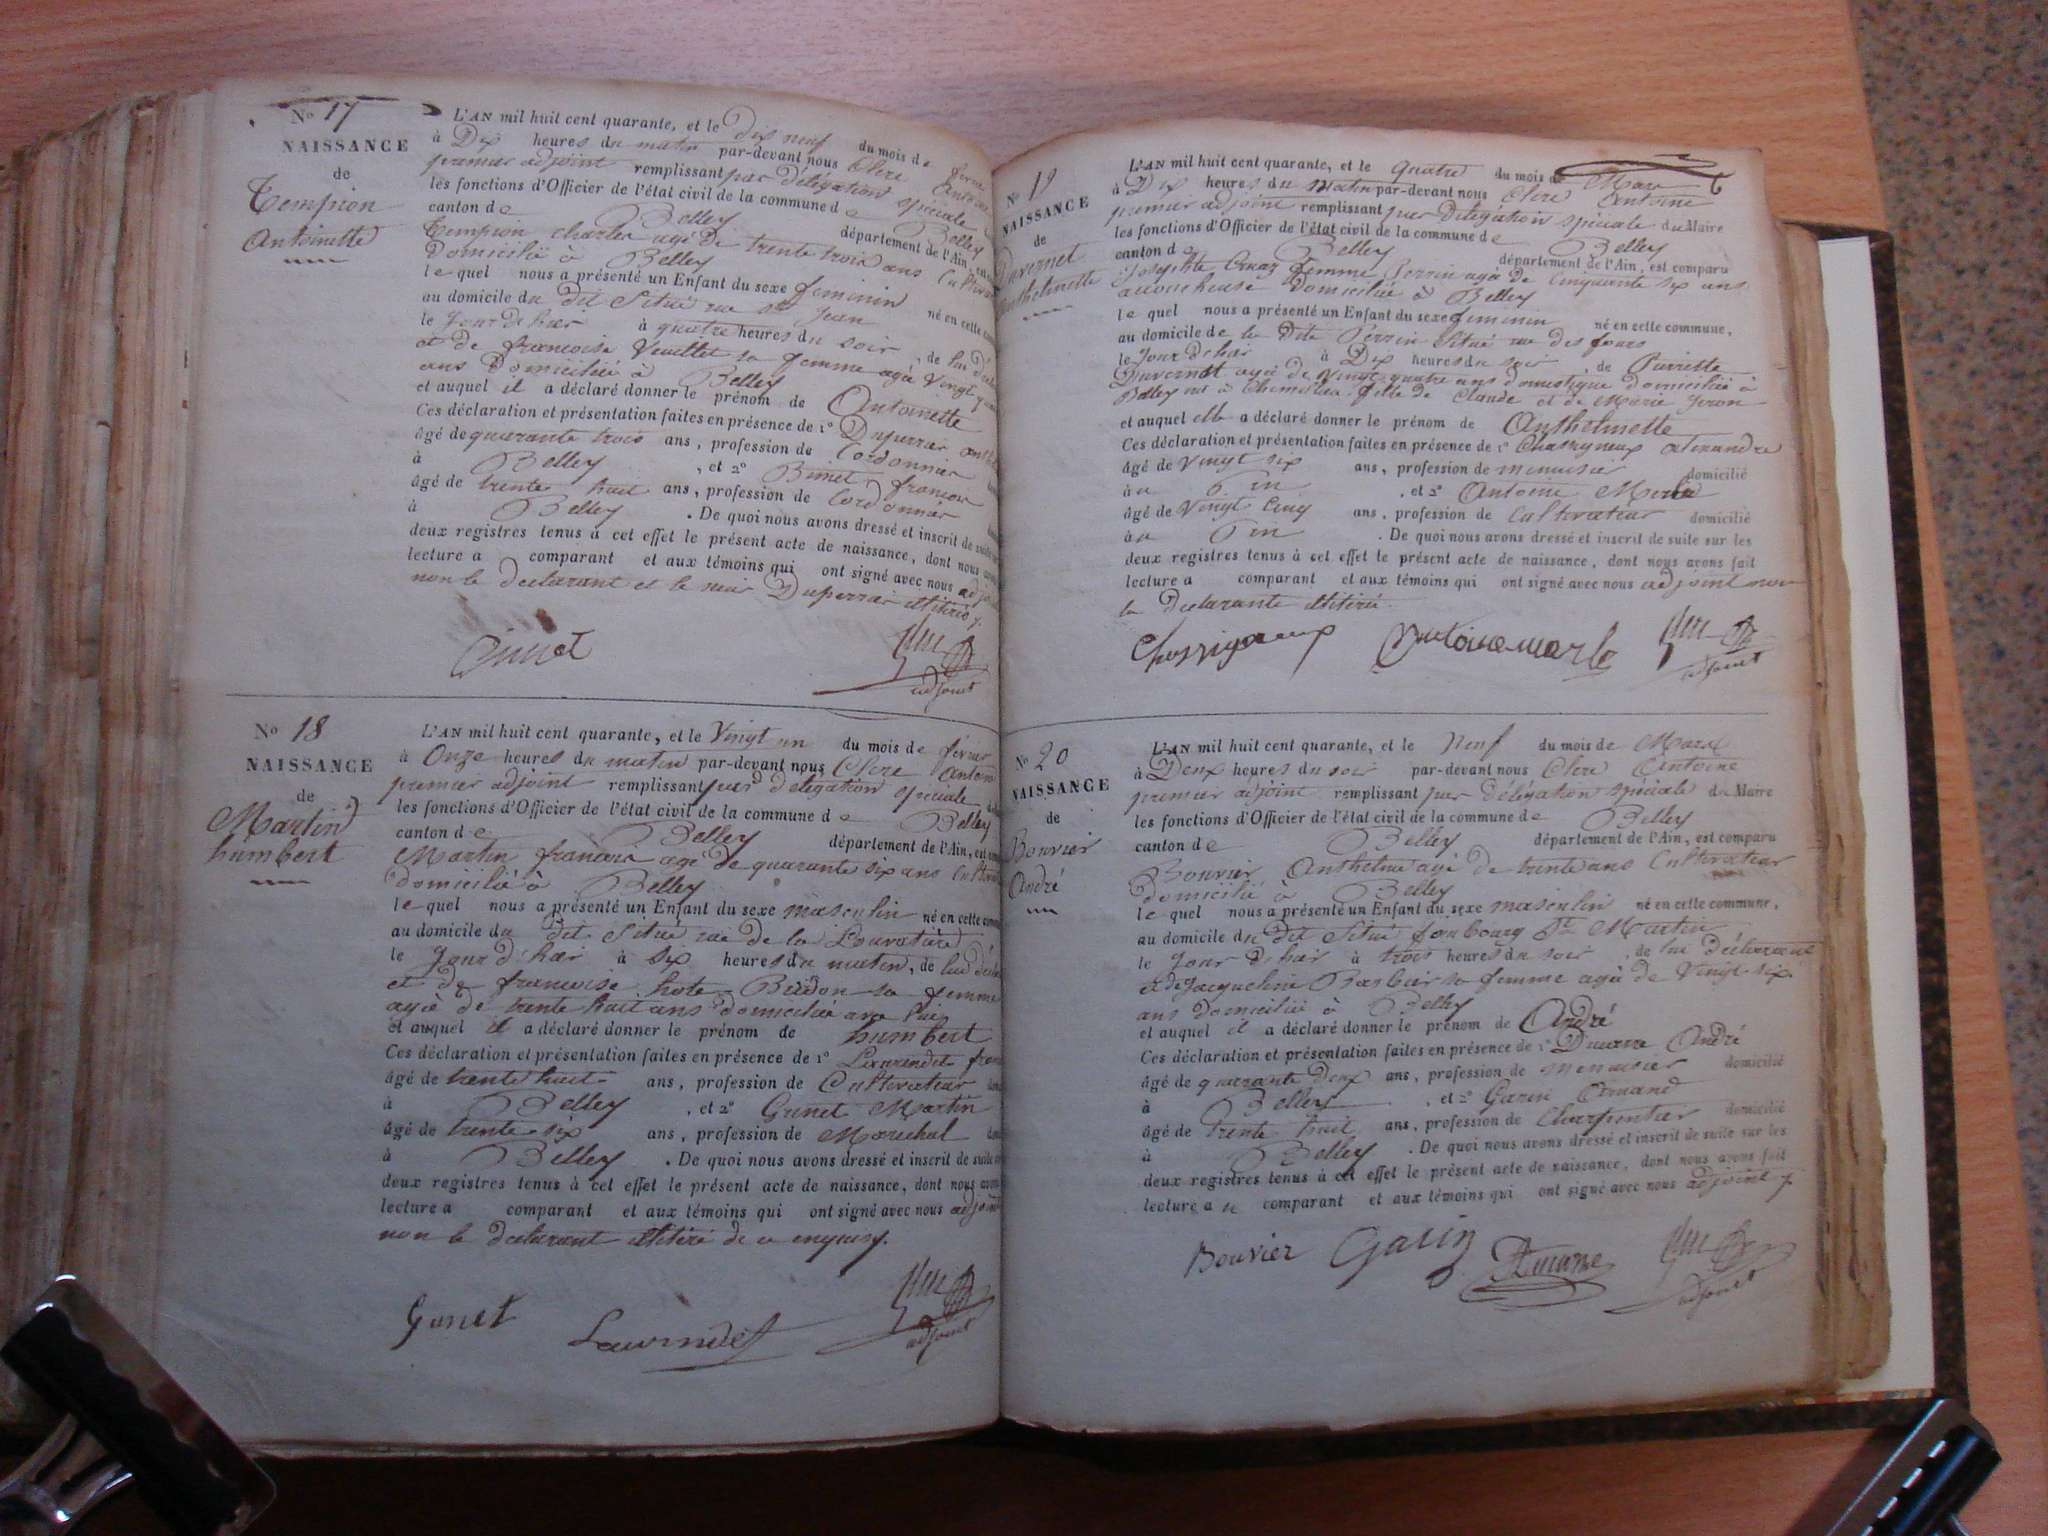 No 17
NAISSANCE
de
Tempion
Antoinette
L'AN mil huit cent quarante, et le Dix neuf du mois de
à Dix heures du matin par-devant nous Clerc Antoine
premier adjoint remplissant par délégation spéciale
les fonctions d'Officier de l'état civil de la commune de Belley
canton de Belley département de l'Ain, est
Tempion charles agé de trente trois ans
domicilié à Belley
le quel nous a présenté un Enfant du sexe feminin né en cette
au domicile du dit Situé rue St Jean
le Jour d'hier à quatre heures du soir, de lui
et de francoise Veuillet sa femme agée Vingt
ans Domiciliée à Belley
et auquel il a déclaré donner le prénom de Antoinette
Ces déclaration et présentation faites en présence de 1o Duperrier
âgé de quarante trois ans, profession de Cordonnier
à Belley, et 2o Binet francois
âgé de trente huit ans, profession de Cordonnier
à Belley. De quoi nous avons dressé et inscrit de suite
deux registres tenus à cet effet le présent acte de naissance, dont nous
lecture a comparant et aux témoins qui ont signé avec nous
non le declarant et le sieur Duperrier illitéré
Binet
adjoint
No 18
NAISSANCE
de
Martin
humbert
L'AN mil huit cent quarante, et le Vingt un du mois de fevrier
à Onze heures du matin par-devant nous Clerc Antoine
premier adjoint remplissant par délégation spéciale
les fonctions d'Officier de l'état civil de la commune de Belley
canton de Belley département de l'Ain, est
Martin francois agé de quarante six ans
domicilié à Belley
le quel nous a présenté un Enfant du sexe masculin né en cette
au domicile du dit Situé rue de la Louvatière
le Jour d'hier à six heures du matin, de lui
et de francoise hote Bidon sa femme
agée de trente huit ans domiciliée avec lui
et auquel il a déclaré donner le prénom de humbert
Ces déclaration et présentation faites en présence de 1o Laurendet
âgé de trente huit ans, profession de Cultivateur
à Belley, et 2o Gunet Martin
âgé de trente six ans, profession de Marechal
à Belley. De quoi nous avons dressé et inscrit de suite
deux registres tenus à cet effet le présent acte de naissance, dont nous
lecture a comparant et aux témoins qui ont signé avec nous adjoint
non le declarant illitéré de ce enquis.
Gunet
adjoint
No 19
NAISSANCE
de
Duvernet
Anthelmette
L'AN mil huit cent quarante, et le quatre du mois de Mars
à Dix heures du matin par-devant nous Clerc Antoine
premier adjoint remplissant par délégation spéciale du Maire
les fonctions d'Officier de l'état civil de la commune de Belley
canton de Belley département de l'Ain, est comparu
Josephte femme Perrin agée de Cinquante six ans
accoucheuse domiciliée à Belley
le quel nous a présenté un Enfant du sexe feminin né en cette commune,
au domicile de la dite Perrin Situé rue des fours
le Jour d'hier à Dix heures du soir, de Pierrette
Duvernet agée de Vingt quatre ans domestique domiciliée à
Belley née à fille de Claude et de Marie
et auquel elle a déclaré donner le prénom de Anthelmette
Ces déclaration et présentation faites en présence de 1o Chassigneux
âgé de Vingt six ans, profession de menuisier domicilié
, et 2o Antoine Merle
âgé de Vingt Cinq ans, profession de Cultivateur domicilié
. De quoi nous avons dressé et inscrit de suite sur les
deux registres tenus à cet effet le présent acte de naissance, dont nous avons fait
lecture a comparant et aux témoins qui ont signé avec nous adjoint non
la declarante illitéré.
antoine merle
adjoint
No 20
NAISSANCE
de
Bouvier
André
L'AN mil huit cent quarante, et le Neuf du mois de Mars
à Deux heures du soir par-devant nous Clerc Antoine
premier adjoint remplissant par délégation spéciale du Maire
les fonctions d'Officier de l'état civil de la commune de Belley
canton de Belley département de l'Ain, est comparu
Bouvier Anthelme agé de trente ans Cultivateur
domicilié à Belley
le quel nous a présenté un Enfant du sexe masculin né en cette commune,
au domicile du dit Situé faubourg St Martin
le Jour d'hier à trois heures du soir, de lui déclarant
et de Jacqueline Barbier sa femme agée de Vingt six
ans domiciliée à Belley
et auquel il a déclaré donner le prénom de André
Ces déclaration et présentation faites en présence de 1o André
âgé de quarante deux ans, profession de menuisier domicilié
à Belley, et 2o Garin Armand
âgé de trente huit ans, profession de Charpentier domicilié
à Belley. De quoi nous avons dressé et inscrit de suite sur les
deux registres tenus à cet effet le présent acte de naissance, dont nous avons fait
lecture au comparant et aux témoins qui ont signé avec nous adjoint
Bouvier Garin
adjoint